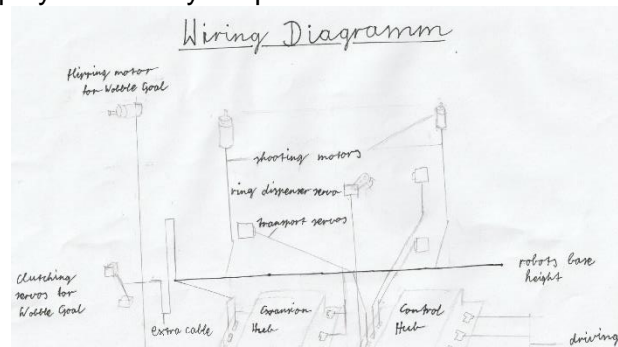 Wiring Diagramm
flipping motor
for Wobble Goal
shooting motors
ring dispenser servo
transport servos
robots base
height
Clutching
servos for
Wobble Goal
extra cable
Expansion
Hub
Control
Hub
driving